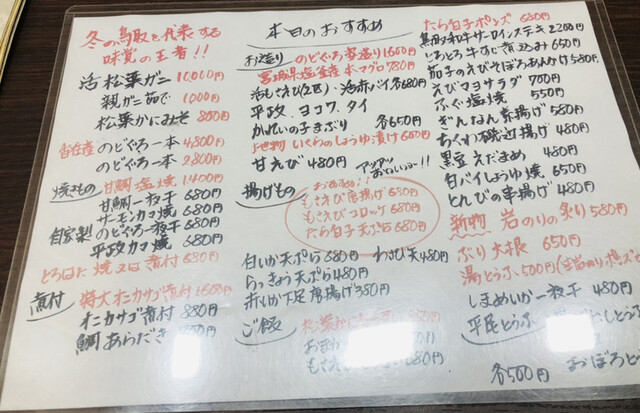 冬の鳥取を代表する
味覚の王者!!
活松葉ガニ 10,000円
親ガニ茹で 1000円
松葉かにみそ 800円
香住産 のどぐろ一本 4800円
のどぐろ一本 2800円
焼きもの 甘鯛塩焼 1400円
甘鯛一夜干 680円
サーモンカマ焼 680円
自家製 のどぐろ一夜干 680円
平政カマ焼 680円
とろはた焼又は煮付 680円
煮付 特大オニカサゴ煮付 1680円
オニカサゴ煮付 880円
鯛あらだき
本日のおすすめ
お造り のどぐろ姿造り 1600円
宮城県塩釜産 本マグロ 780円
活もさえび(2匹)・活赤バイ 各680円
平政、ヨコワ、タイ
かれいの子まぶり 各650円
いくらのしょうゆ漬け 680円
甘えび 480円
アップップ
おいしいヨー!!
揚げもの
おすすめ!!
もさえび唐揚げ 680円
もさえびコロッケ 680円
たら白子天ぷら 680円
白いか天ぷら 680円 わさび天 480円
らっきょう天ぷら 480円
赤いか下足唐揚げ 380円
ご飯 松葉かに
おまか
もさえび
たら白子ポンズ 680円
鳥取和牛サーロインステキ 2200円
とろとろ牛すじ煮込み 650円
茄子のえびそぼろあんかけ 580円
エビマヨサラダ 700円
ふぐ塩焼 550円
ぎんなん素揚げ 580円
ちくわ磯辺揚げ 480円
黒豆えだまめ 480円
白バイしょうゆ焼 650円
とんびの串揚げ 480円
新物 岩のりの炙り 580円
ぶり大根 650円
湯とうふ 500円
しまめいか一夜干 480円
平尾とうふ
各500円 おぼろと